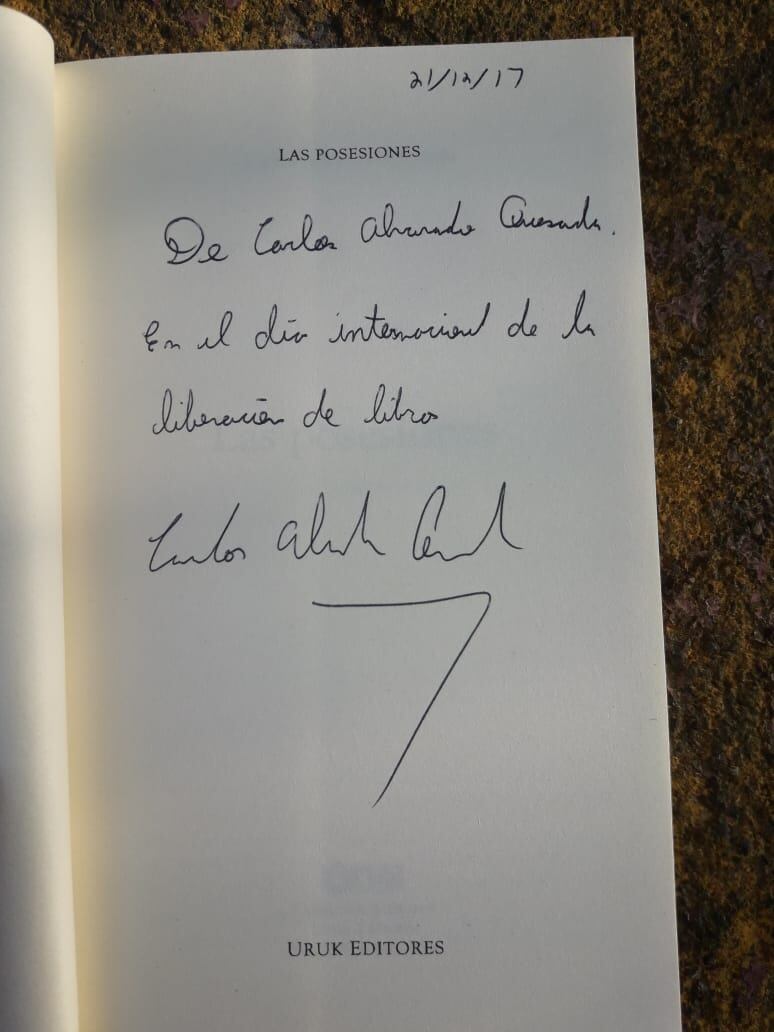 21/12/17
LAS POSESIONES
De Carlos Alvarado Quesada.
En el día internacional de la
liberación de libros
Carlos Alvarado Quesada
URUK EDITORES